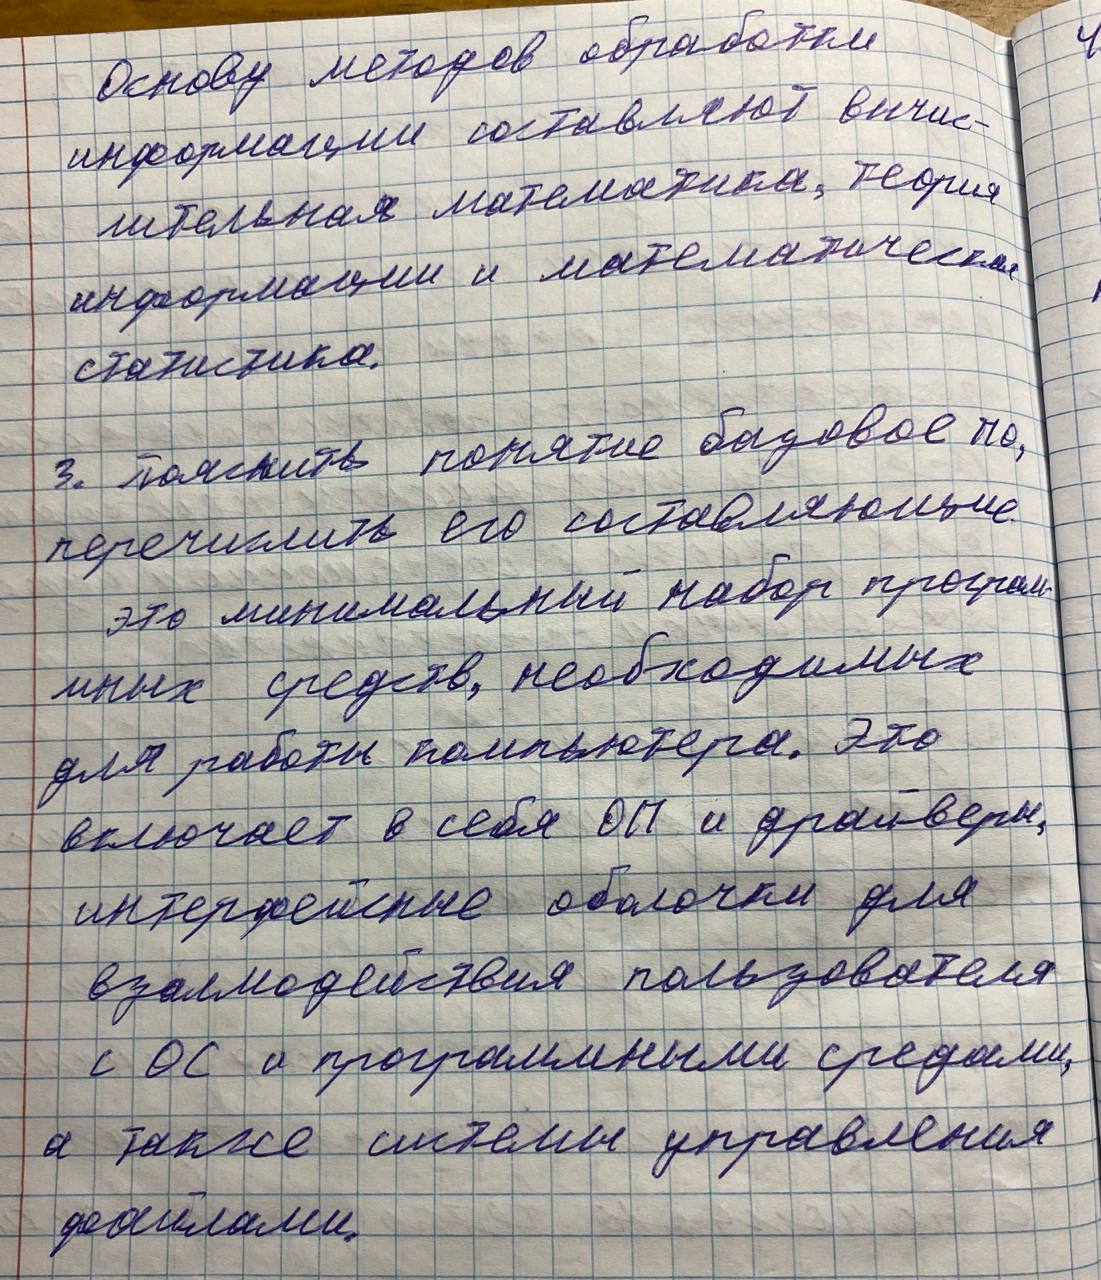 Основу методов обработки
информации составляют вычис-
лительная математика, теория
информации и математическая
статистика.
3. Пояснить понятие базовое ПО,
перечислить его составляющие
это минимальный набор програм-
мных средств, необходимых
для работы компьютера. Это
включает в себя ОП и драйверы,
интерфейсные оболочки для
взаимодействия пользователя
с ОС и программными средами,
а также системы управления
файлами.